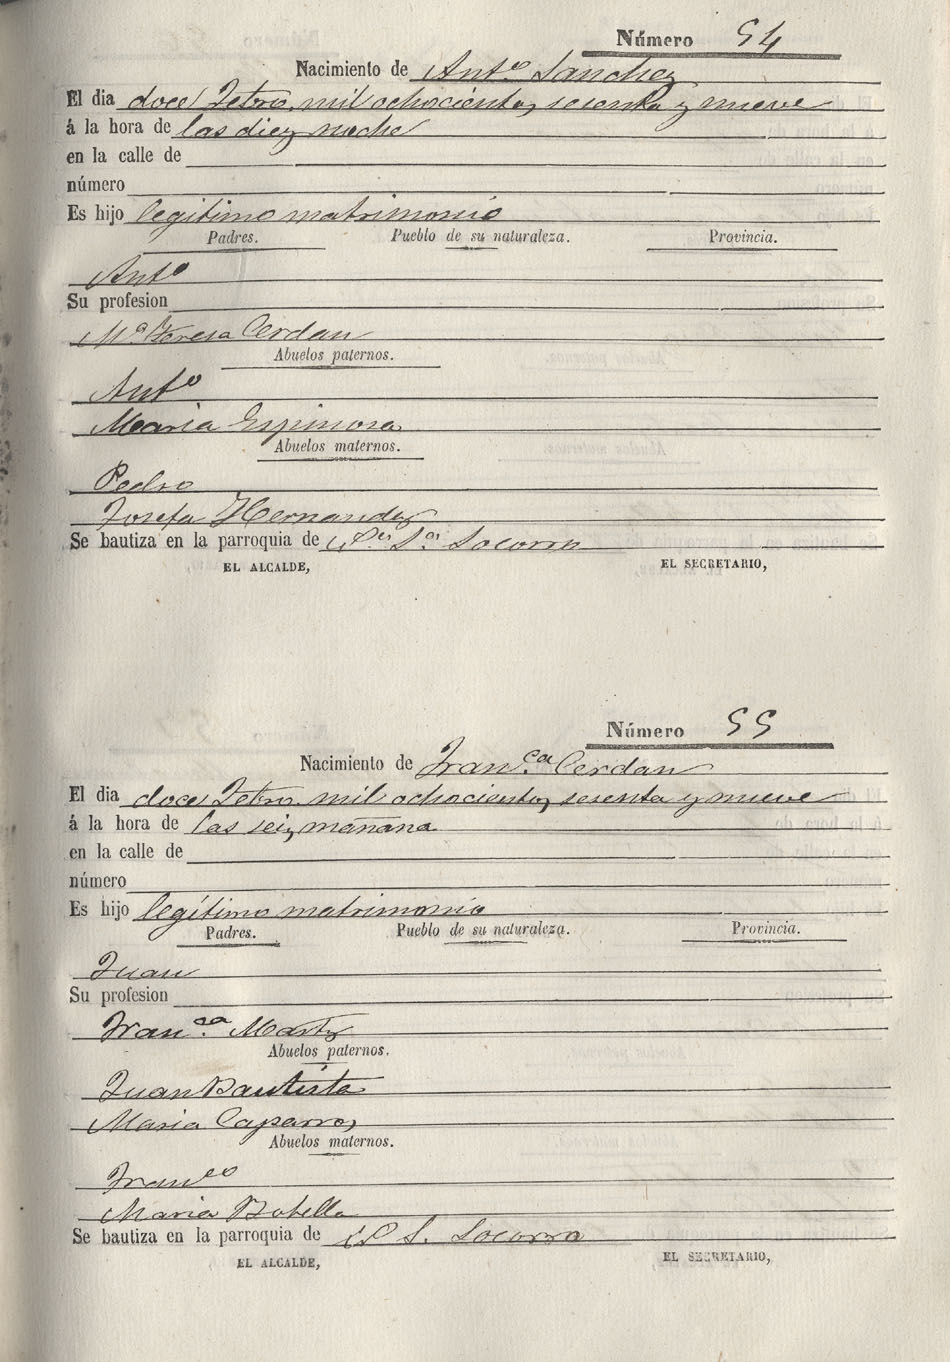 Número 54
Nacimiento de Ant.º Sanchez
El dia doce Febro. mil ochocientos sesenta y nueve
á la hora de las diez noche
en la calle de
número
Es hijo legitimo matrimonio
Padres. Pueblo de su naturaleza. Provincia.
Antº
Su profesion
Mª Teresa Cerdan
Abuelos paternos.
Antº
Maria Espinosa
Abuelos maternos.
Pedro
Josefa Hernandez
Se bautiza en la parroquia de Socorro
EL ALCALDE, EL SECRETARIO,
Número 55
Nacimiento de Fran.ca Cerdan
El dia doce Febro. mil ochocientos sesenta y nueve
á la hora de las seis mañana
en la calle de
número
Es hijo legítimo matrimonio
Padres. Pueblo de su naturaleza. Provincia.
Juan
Su profesion
Fran.ca Martz
Abuelos paternos.
Juan Bautista
Maria Caparros
Abuelos maternos.
Franco
Maria Botella
Se bautiza en la parroquia de S. Socorro
EL ALCALDE, EL SECRETARIO,